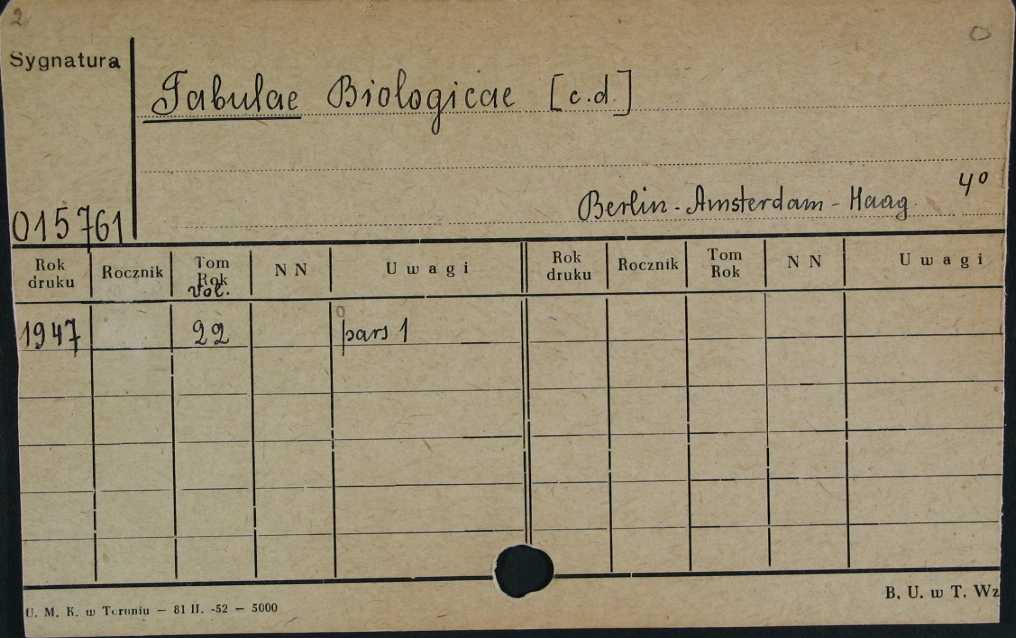 2
Sygnatura
Tabulae Biologicae [c.d.]
4o
Berlin - Amsterdam - Haag
015761
Rok druku Rocznik Tom Rok vol. N N Uwagi Rok druku Rocznik Tom Rok N N Uwagi
1947 22 pars 1
U. M. K. w Toruniu — 81 II. -52 — 5000
B. U. w T. Wz